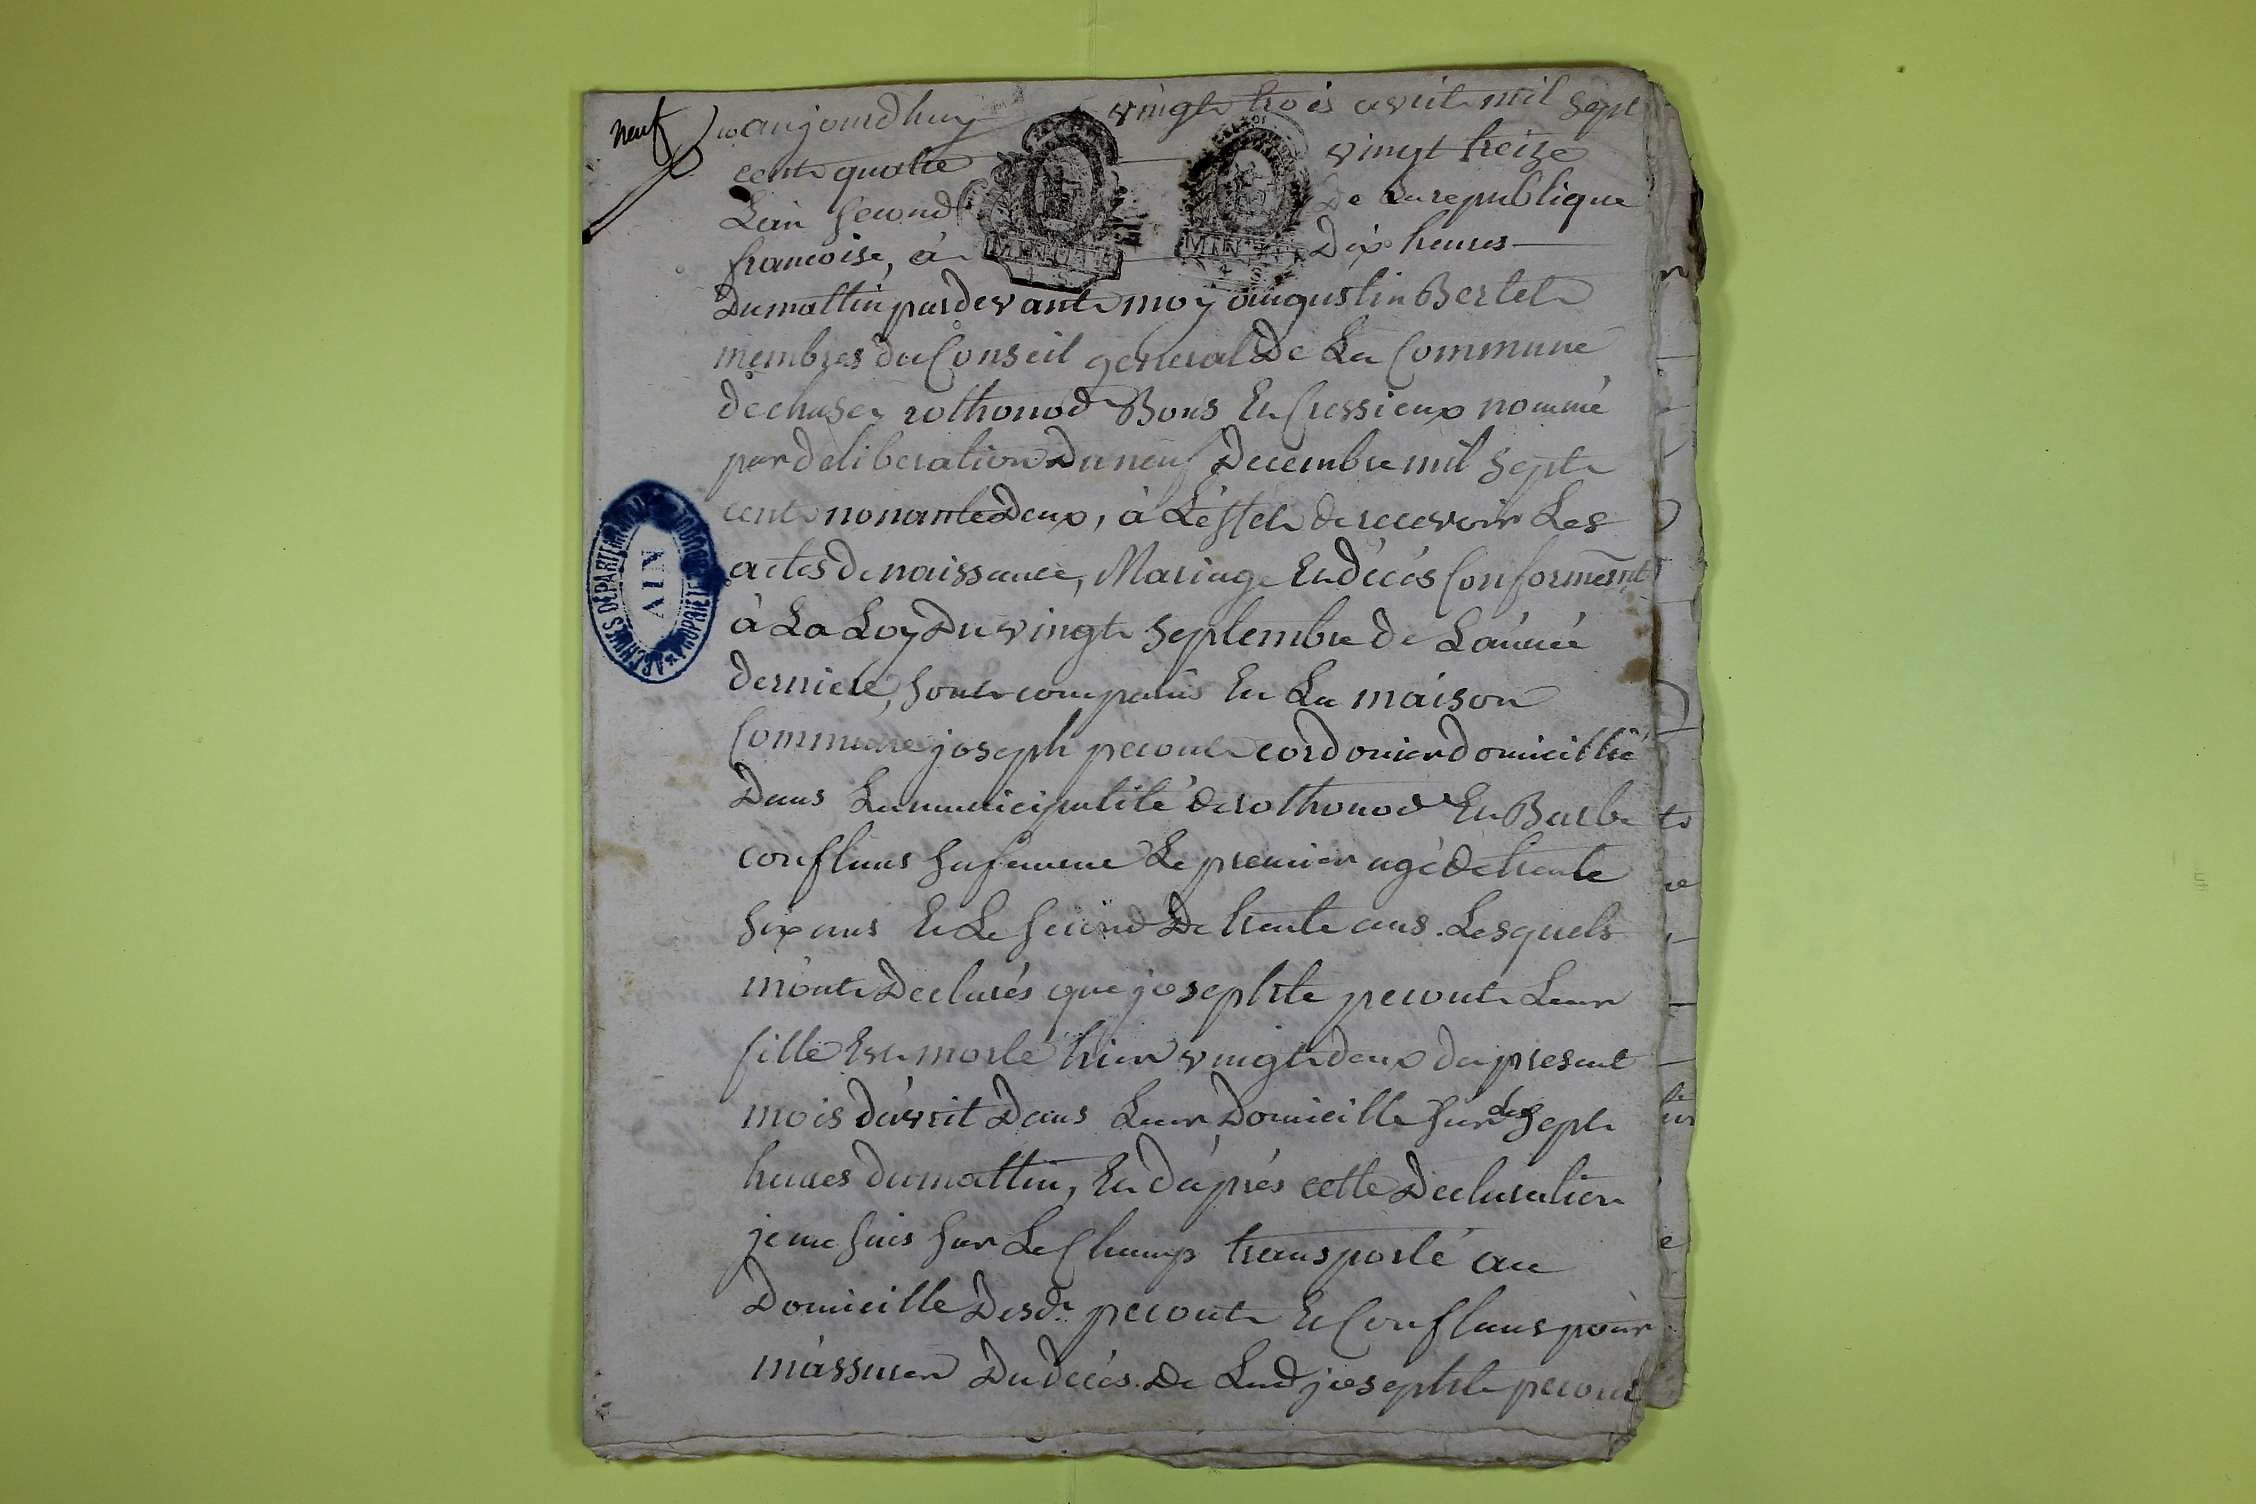 neuf
aujourdhuy vingt trois avril mil sept
cent quatre vingt treize
Lan second de La republique
francoise, à dix heures
MINUTE
MINUTE
Du mattin pardevant moy augustin Bertet
membres du Conseil general De La Commune
de chasey rothonod Bons Et Cressieux nommé
par deliberation Du neuf Decembre mil sept
cent nonante Deux, à L'effet de recevoir Les
actes de naissance, Mariage Et décés Conformemt
à La Loy Du vingt Septembre de L'année
derniere, sont comparus En La maison
Commune joseph pecout cordonier domicillié
Dans La municipalité de rothonod Et Barbe
conflans sa femme Le premier agé de trente
six ans Et Le second De trente ans. Lesquels
m'ont Declarés que josephte pecout Leur
fille Est morte hier vingt deux du present
mois d'avril Dans Leur Domicille sur les sept
heures du mattin, Et d'aprés cette Declaration
je me suis sur Le Champ transporté au
Domicille Desd. pecout Et Conflans pour
m'assurer Du décés De Lad josephte pecout
ARCHIVES DÉPARTEMENTALES
AIN
PROPRIÉTÉ PUBLIQUE